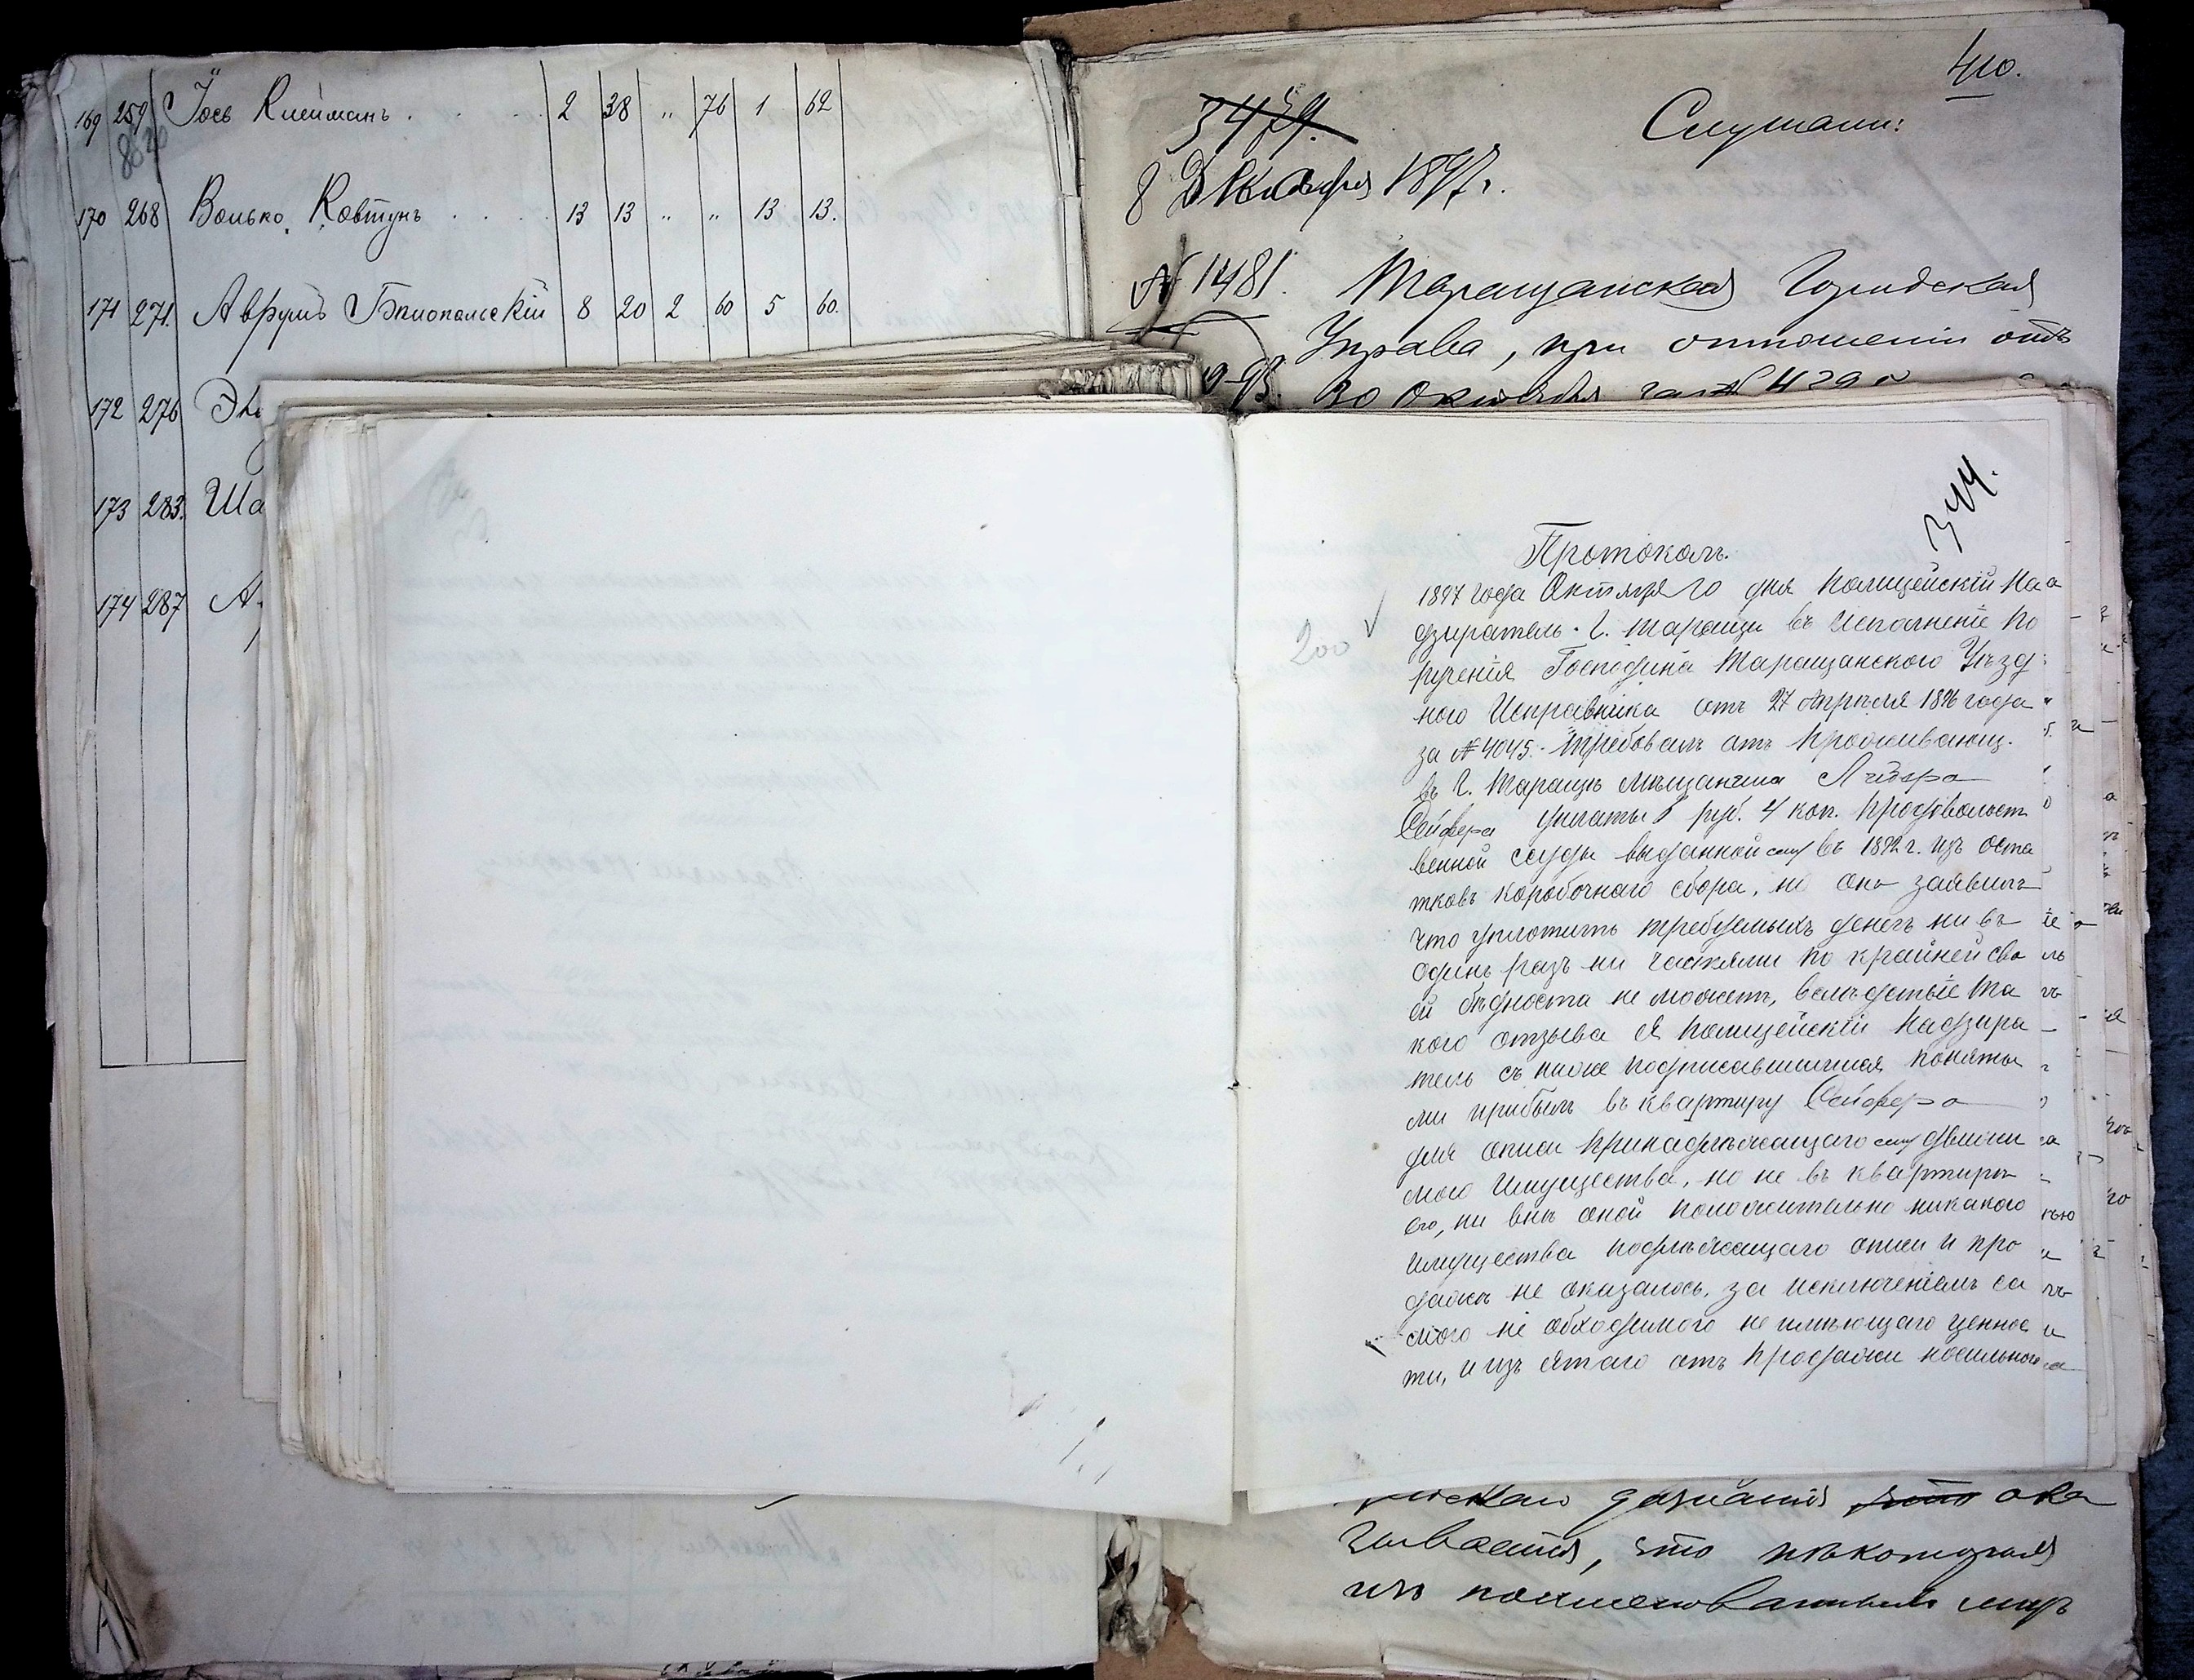 169 259 Іось Клейманъ . . . 2 38 „ 76 1 62
170 268 Волько Ковтунъ . . . 13 13 „ „ 13 13.
171 271. Аврумъ Бялопольскій 8 20 2 60 5 60.
172 276
173 283. Ша
174 287 А
410.
3479.
Слушали:
8 Декабря 1897 г.
№ 1481. Таращанская Городская
Управа, при отношеніи отъ
30 Октября за №
344.
Протоколъ.
200
1897 года Октября 10 дня Полицейскій На
дзиратель г. Таращи въ исполненіе по
рученія Господина Таращанского Уѣзд
ного Исправника отъ 27 Апрѣля 1896 года
за № 4045. требовалъ отъ проживающ.
въ г. Таращѣ мѣщанина Лейзера
Сейфера уплаты 8 руб. 4 коп. продовольст
венной ссуды выданной ему въ 1892 г. изъ оста
тковъ коробочнаго сбора, но онъ заявилъ
что уплотить требуемыхъ денегъ ни въ
одинъ разъ ни частями по крайней сво
ей бѣдности не можетъ, вслѣдствіе та
кого отзыва я Полицейскій Надзира
тель съ ниже подписавшимися поняты
ми прибылъ въ квартиру Сейфера
для описи принадлѣжащаго ему движи
мого имущества, но не въ квартирѣ
его, ни внѣ оной положительно никакого
имущества подлѣжащаго описи и про
дажѣ не оказалось, за исключеніемъ са
мого не обходимого не имѣющаго ценнос
ти, и изъ ятаго отъ продажи носильного
дознанія ока
зывается, что нѣкоторыя
изъ поименованныхъ лицъ